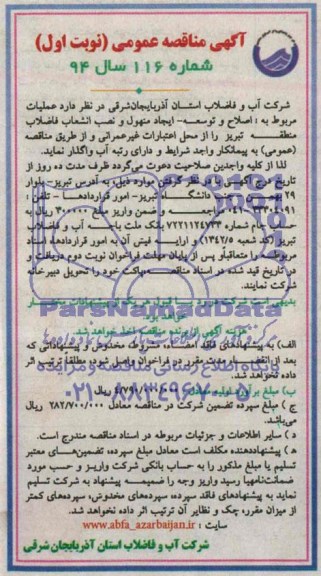 آگهی مناقصه عمومی (نوبت اول)
شماره ۱۱۶ سال ۹۴
شرکت آب و فاضلاب استان آذربایجان‌شرقی در نظر دارد عملیات
مربوط به : اصلاح و توسعه- ایجاد منهول و نصب انشعاب فاضلاب
منطقه تبریز را از محل اعتبارات غیرعمرانی و از طریق مناقصه
(عمومی) به پیمانکار واجد شرایط و دارای رتبه آب واگذار نماید.
لذا از کلیه واجدین صلاحیت دعوت می‌گردد ظرف مدت ده روز از
تاریخ درج آگهی با در نظر گرفتن موارد ذیل، به آدرس تبریز- بلوار
۲۹ بهمن دانشگاه تبریز- امور قراردادها - تلفن :
مراجعه و ضمن واریز مبلغ ریال به
حساب جام شماره ۷۲۲۱۱۲۴۷۳۳ بانک ملت باجه آب و فاضلاب
تبریز (کد شعبه ۱۳۴۲/۵) و ارایه فیش آن به امور قراردادها، اسناد
مربوطه را متعاقباً و پس از پایان مهلت فراخوان نوبت دوم دریافت و
در تاریخ قید شده در اسناد مناقصه پاکت خود را تحویل دبیرخانه
شرکت نمایند.
بدیهی است شرکت در رد یا قبول هر یک از پیشنهادات مختار
خواهد بود.
هزینه آگهی از برنده مناقصه اخذ خواهد شد.
ParsNamadData
پایگاه اطلاع رسانی مناقصه و مزایده
۰۲۱-۸۸۳۴۹۶۷۰-۵
الف) به پیشنهادهای فاقد امضاء، مشروط، مخدوش و پیشنهاداتی که
بعد از انقضاء مدت مقرر در فراخوان واصل شود مطلقاً ترتیب اثر
داده نخواهد شد.
ب) مبلغ برآورد اولیه معادل ریال
ج ) مبلغ سپرده تضمین شرکت در مناقصه معادل ۲۸۲/۷۰۰/۰۰۰ ریال
می‌باشد.
د ) سایر اطلاعات و جزئیات مربوطه در اسناد مناقصه مندرج است.
ه ) پیشنهاددهنده مکلف است معادل مبلغ سپرده، تضمین‌های معتبر
تسلیم یا مبلغ مذکور را به حساب بانکی شرکت واریز و حسب مورد
ضمانت‌نامه یا رسید واریز وجه را ضمیمه پیشنهاد به شرکت تسلیم
نماید به پیشنهادهای فاقد سپرده، سپرده‌های مخدوش، سپرده‌های کمتر
از میزان مقرر، چک و نظایر آن ترتیب اثر داده نخواهد شد.
سایت : www.abfa_azarbaijan.ir
شرکت آب و فاضلاب استان آذربایجان شرقی